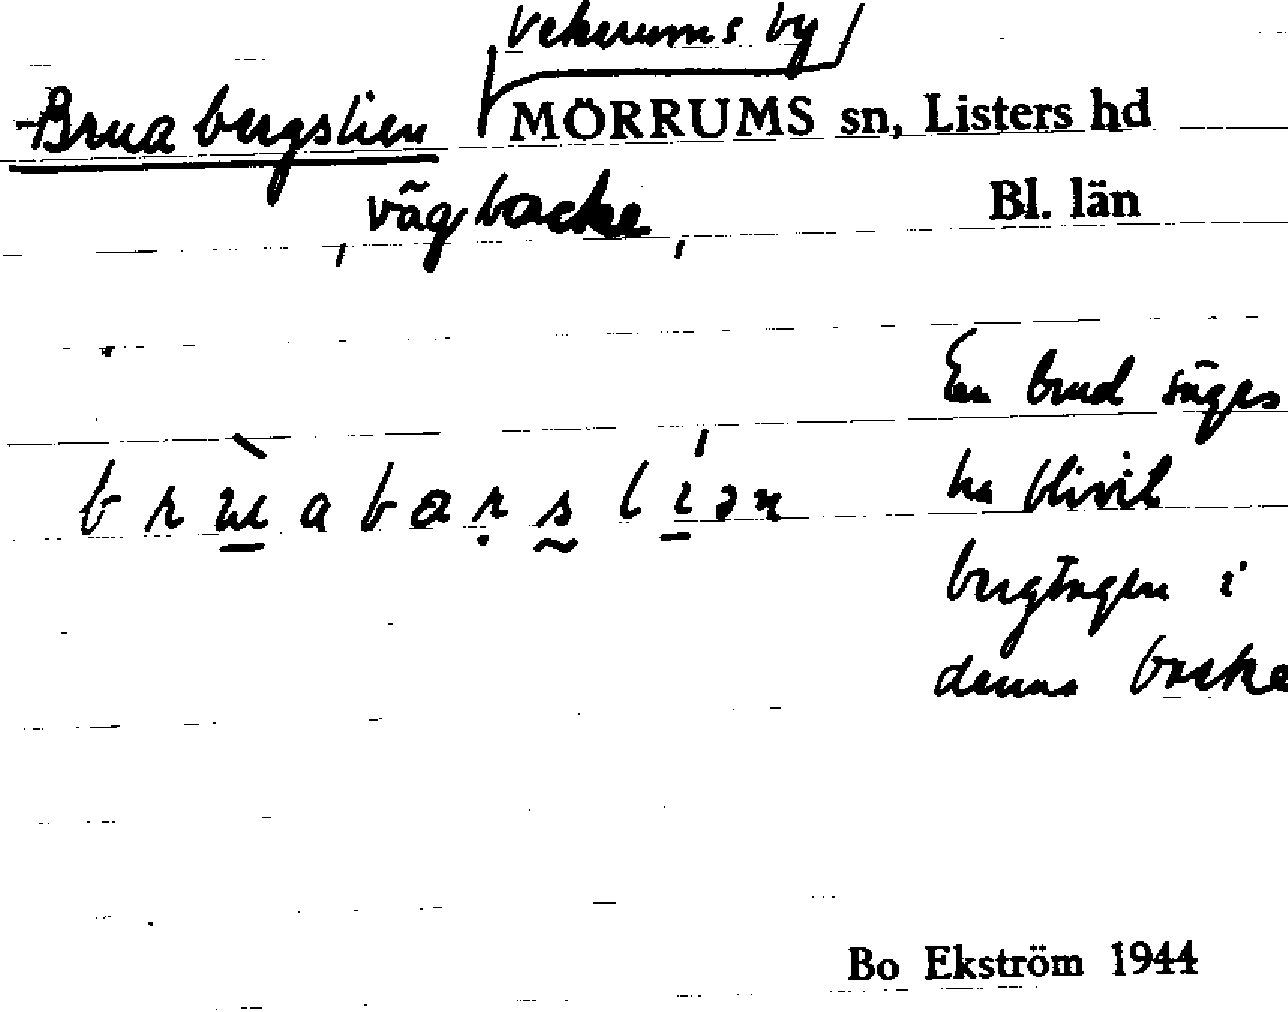 Vekerums by
Bruabergslien MÖRRUMS sn, Listers hd
vägbacke Bl. län
En brud säges
bruabarsliən ha blivit
bergtagen i
denna backe
Bo Ekström 1944